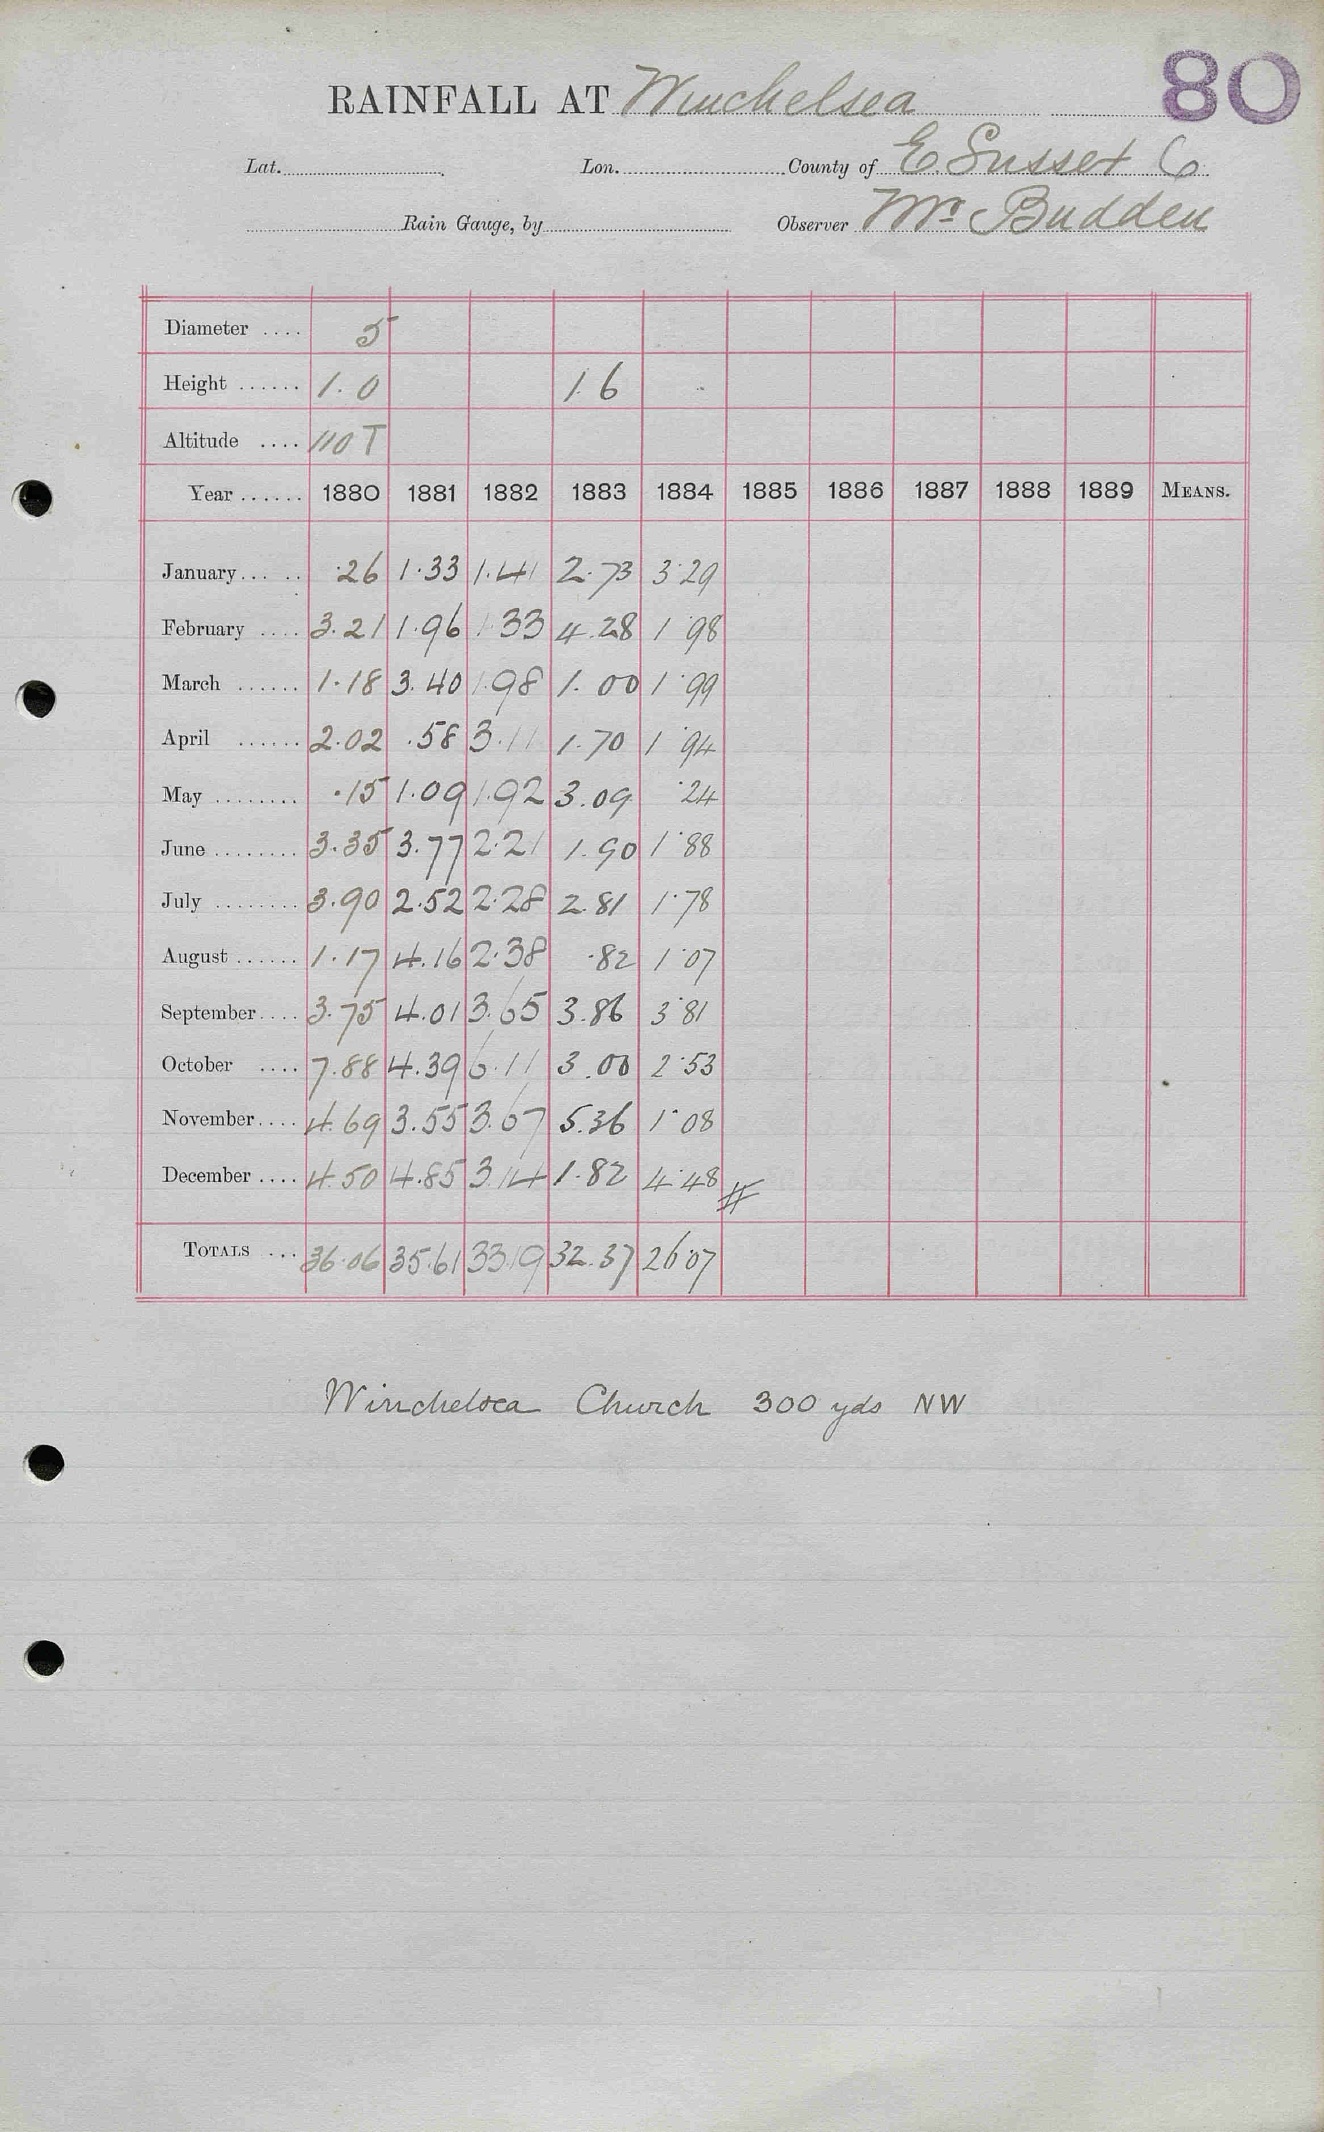 80
RAINFALL AT Winchelsea
Lat. Lon. County of E. Sussex
Rain Gauge, by Observer Mr Budden
Diameter .... 5
Height ...... 1.0 1.6
Altitude .... 110 T
Year ...... 1880 1881 1882 1883 1884 1885 1886 1887 1888 1889 MEANS.
January... .. .26 1.33 1.41 2.73 3.29
February .... 3.21 1.96 1.33 4.28 1.98
March ...... 1.18 3.40 1.98 1.00 1.99
April ...... 2.02 .58 3.11 1.70 1.94
May ........ .15 1.09 1.92 3.09 .24
June ........ 3.35 3.77 2.21 1.90 1.88
July ........ 3.90 2.52 2.28 2.81 1.78
August ...... 1.17 4.16 2.38 .82 1.07
September.... 3.75 4.01 3.65 3.86 3.81
October .... 7.88 4.39 6.11 3.00 2.53
November.... 4.69 3.55 3.67 5.36 1.08
December .... 4.50 4.85 3.14 1.82 4.48 #
TOTALS ... 36.06 35.61 33.19 32.37 26.07
Winchelsea Church 300 yds NW